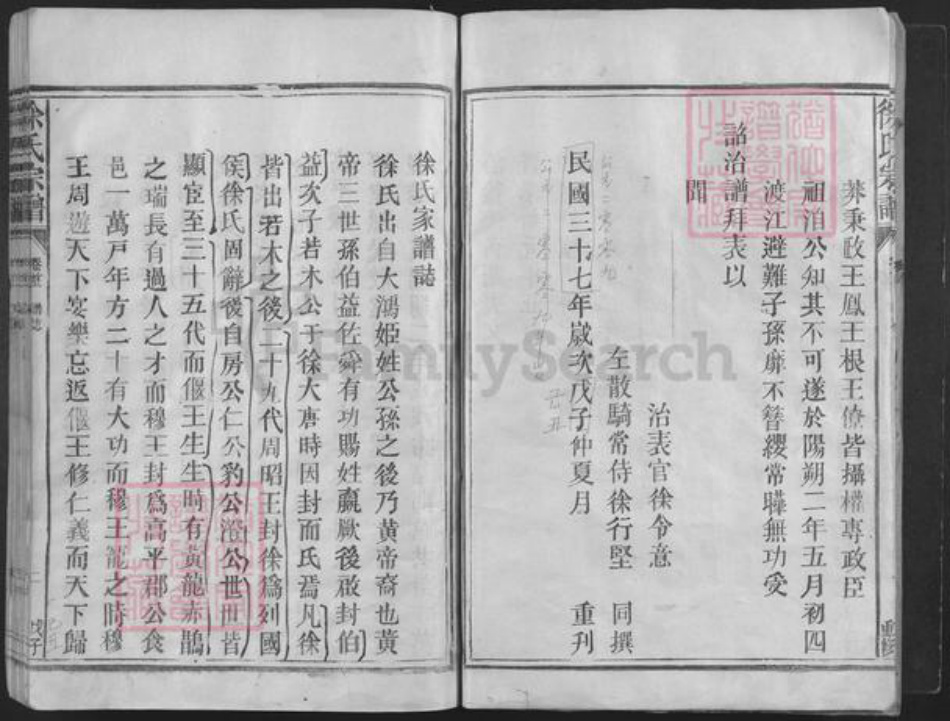 莽秉政王鳳王根王僚皆攝權專政臣
祖洎公知其不可遂於陽朔二年五月初四
渡江避難子孫靡不簪纓常曄無功受
詔治譜拜表以
聞
治表官徐令意
左散騎常侍徐行堅 同撰
民國三十七年歲次戊子仲夏月 重刋
徐氏宗譜
徐氏家譜誌
徐氏出自大鴻姬姓公孫之後乃黃帝裔也黃
帝三世孫伯益佐舜有功賜姓嬴厥後啟封伯
益次子若木公于徐大唐時因封而氏焉凡徐
皆出若木之後二十九代周昭王封徐為列國
侯徐氏固辭後自房公仁公豹公澄公世世皆
顯宦至三十五代而偃王生生時有黃龍赤鵲
之瑞長有過人之才而穆王封為高平郡公食
邑一萬戸年方二十有大功而穆王寵之時穆
王周遊天下宴樂忘返偃王修仁義而天下歸
徐氏宗譜
戊子
FamilySearch